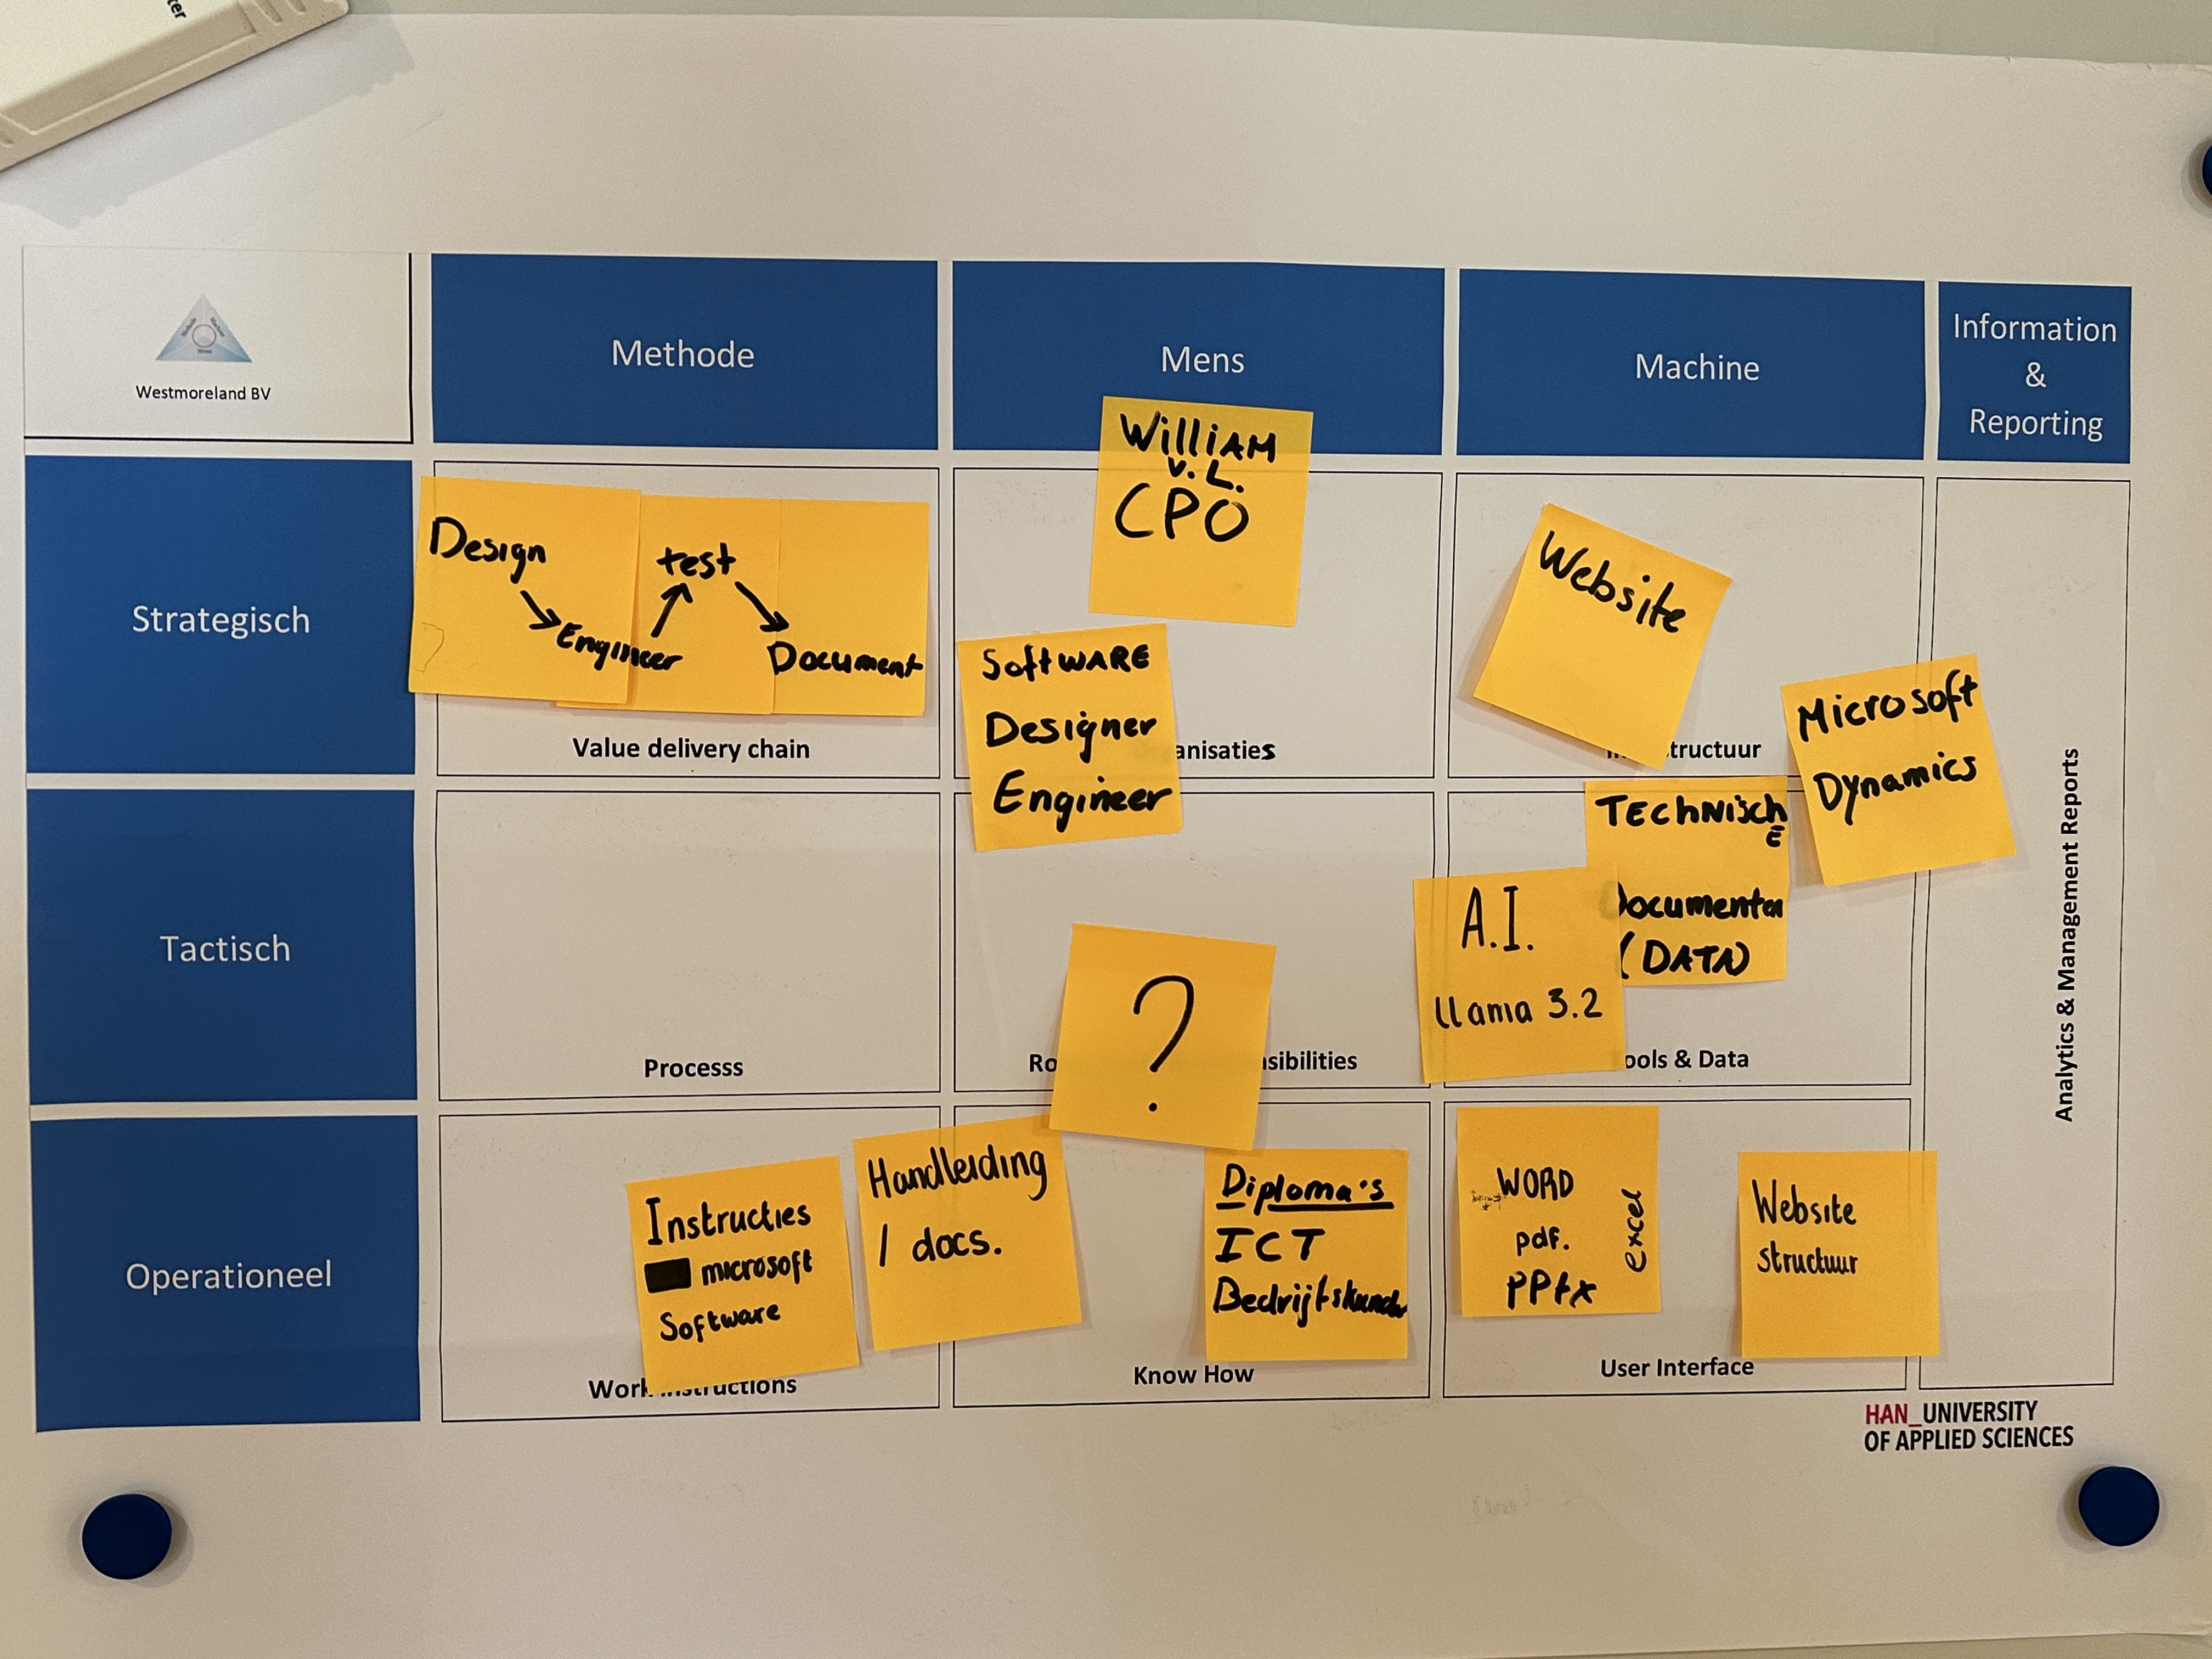 ter
Methode
Machine
Mens
Westmoreland BV
Methode
Mens
Machine
Information
&
Reporting
Strategisch
Design
Engineer
test
Document
Value delivery chain
William
v. L.
CPO
Software
Designer
Engineer
anisaties
Website
tructuur
Microsoft
Dynamics
Tactisch
Processs
?
Ro
sibilities
A.I.
llama 3.2
TECHNISCH
E
Documenten
(DATA)
ools & Data
Analytics & Management Reports
Operationeel
Instructies
microsoft
Software
Handleiding
/ docs.
Work instructions
Diploma's
ICT
Bedrijfskunde
Know How
WORD
pdf.
pptx
excel
Website
structuur
User Interface
HAN_UNIVERSITY
OF APPLIED SCIENCES